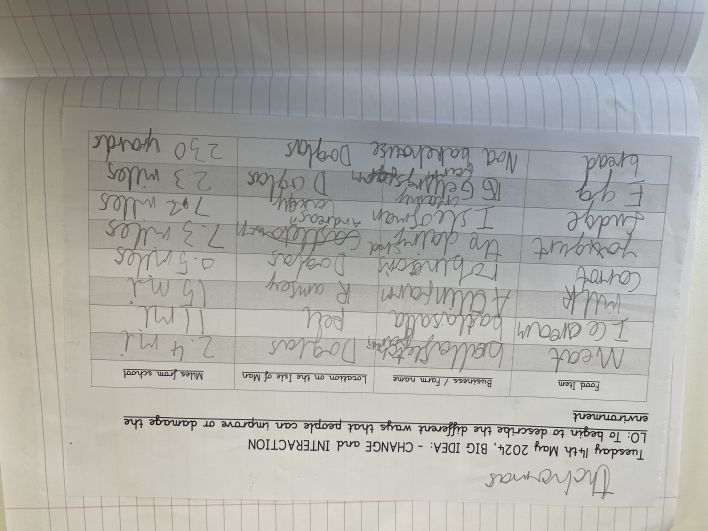 thohomas
Tuesday 14th May 2024, BIG IDEA: - CHANGE and INTERACTION
LO: To begin to describe the different ways that people can improve or damage the
environment
Food Item Business / Farm name Location on the Isle of Man Miles from school
Meat Doglas 2.4 mi
Ice cream ballasalla pell 11 mi
milk Allinfarm Ramsey 15 mi
Carrot robinson's Doglas 0.5 miles
yoxgurt the dairy Castletown 7.3 miles
fudge Isleofman Andreas 7.2 miles
Egg farm Doglas 2.3 miles
bread Noa bakehouse Doglas 230 yards